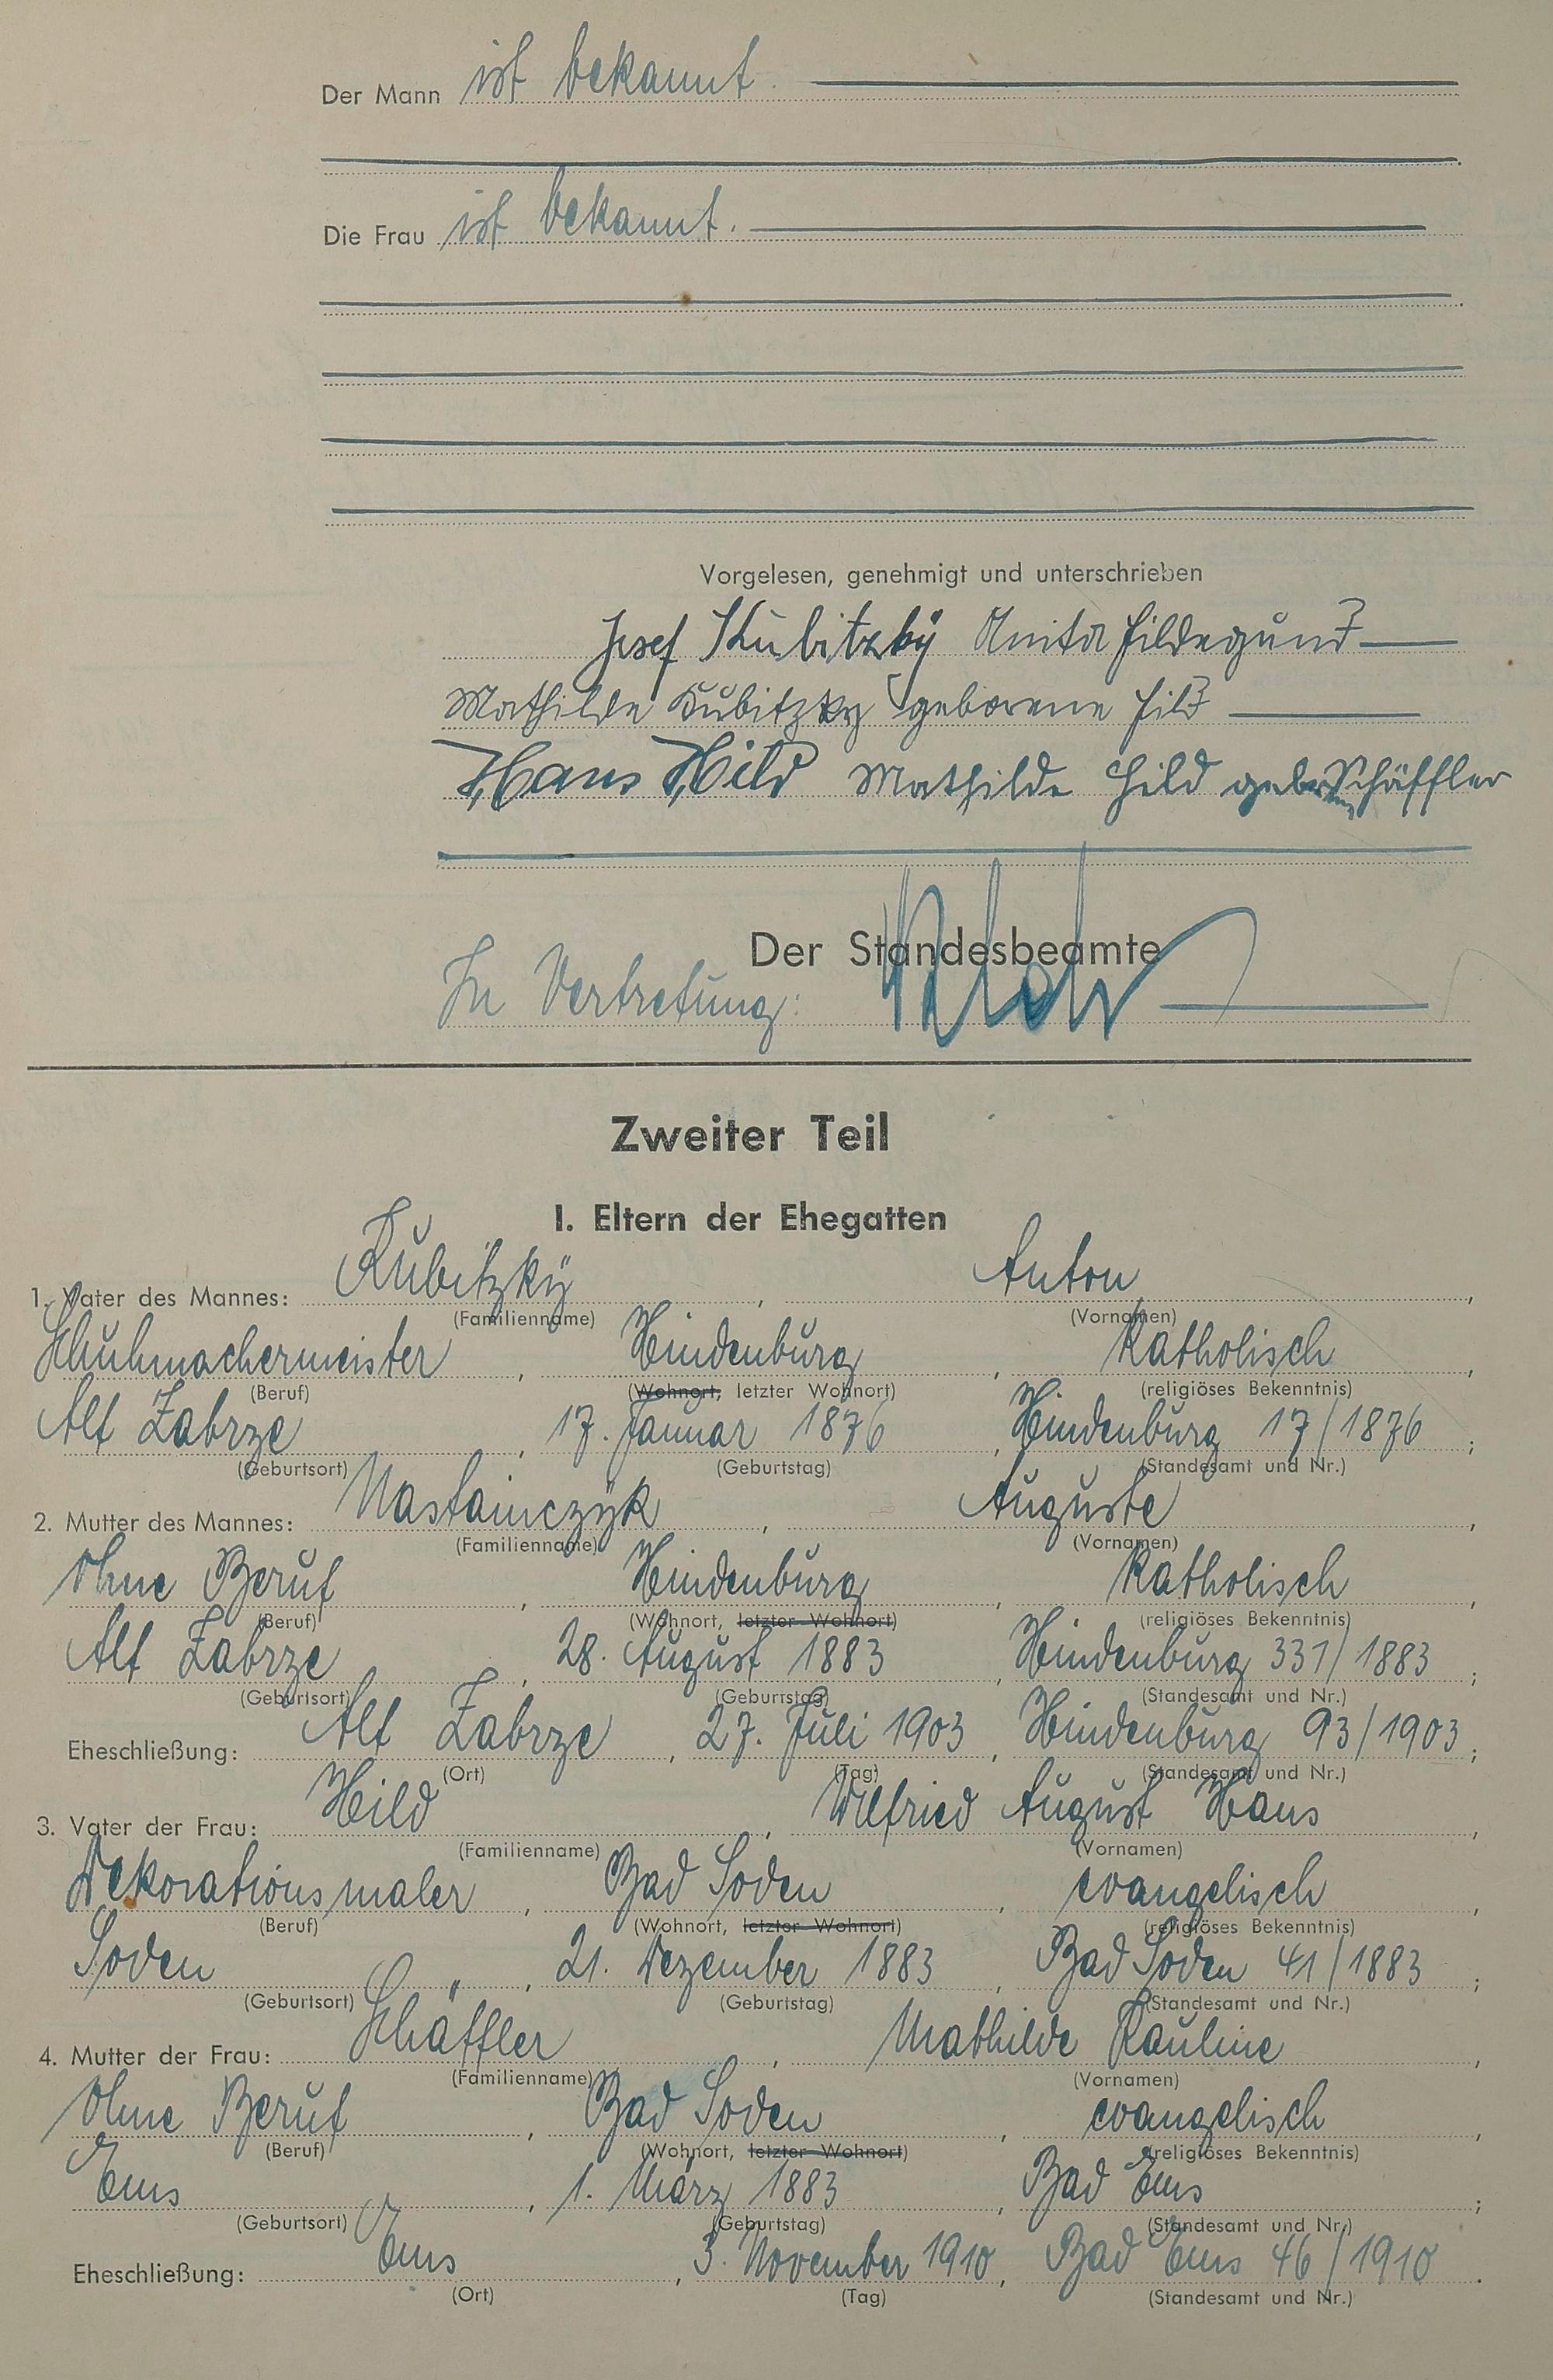 Der Mann ist bekannt.
Die Frau ist bekannt.
Vorgelesen, genehmigt und unterschrieben
Josef Kubitzky Anita Hildegund
Mathilde Kubitzky geborene Hild
Hans Hild Mathilde Hild geborene Schäffler
Der Standesbeamte
In Vertretung:
Zweiter Teil
I. Eltern der Ehegatten
1. Vater des Mannes: Kubitzky, Anton,
(Familienname) (Vornamen)
Schuhmachermeister, Hindenburg, katholisch,
(Beruf) (Wohnort, letzter Wohnort) (religiöses Bekenntnis)
Alt Zabrze, 17. Januar 1876, Hindenburg 17/1876;
(Geburtsort) (Geburtstag) (Standesamt und Nr.)
2. Mutter des Mannes: Nastainczyk, Auguste,
(Familienname) (Vornamen)
ohne Beruf, Hindenburg, katholisch,
(Beruf) (Wohnort, letzter Wohnort) (religiöses Bekenntnis)
Alt Zabrze, 28. August 1883, Hindenburg 331/1883;
(Geburtsort) (Geburtstag) (Standesamt und Nr.)
Eheschließung: Alt Zabrze, 27. Juli 1903, Hindenburg 93/1903;
(Ort) (Tag) (Standesamt und Nr.)
3. Vater der Frau: Hild, Wilfried August Hans,
(Familienname) (Vornamen)
Dekorationsmaler, Bad Soden, evangelisch,
(Beruf) (Wohnort, letzter Wohnort) (religiöses Bekenntnis)
Soden, 21. Dezember 1883, Bad Soden 41/1883;
(Geburtsort) (Geburtstag) (Standesamt und Nr.)
4. Mutter der Frau: Schäffler, Mathilde Pauline,
(Familienname) (Vornamen)
ohne Beruf, Bad Soden, evangelisch,
(Beruf) (Wohnort, letzter Wohnort) (religiöses Bekenntnis)
Ems, 1. März 1883, Bad Ems;
(Geburtsort) (Geburtstag) (Standesamt und Nr.)
Eheschließung: Ems, 3. November 1910, Bad Ems 46/1910.
(Ort) (Tag) (Standesamt und Nr.)